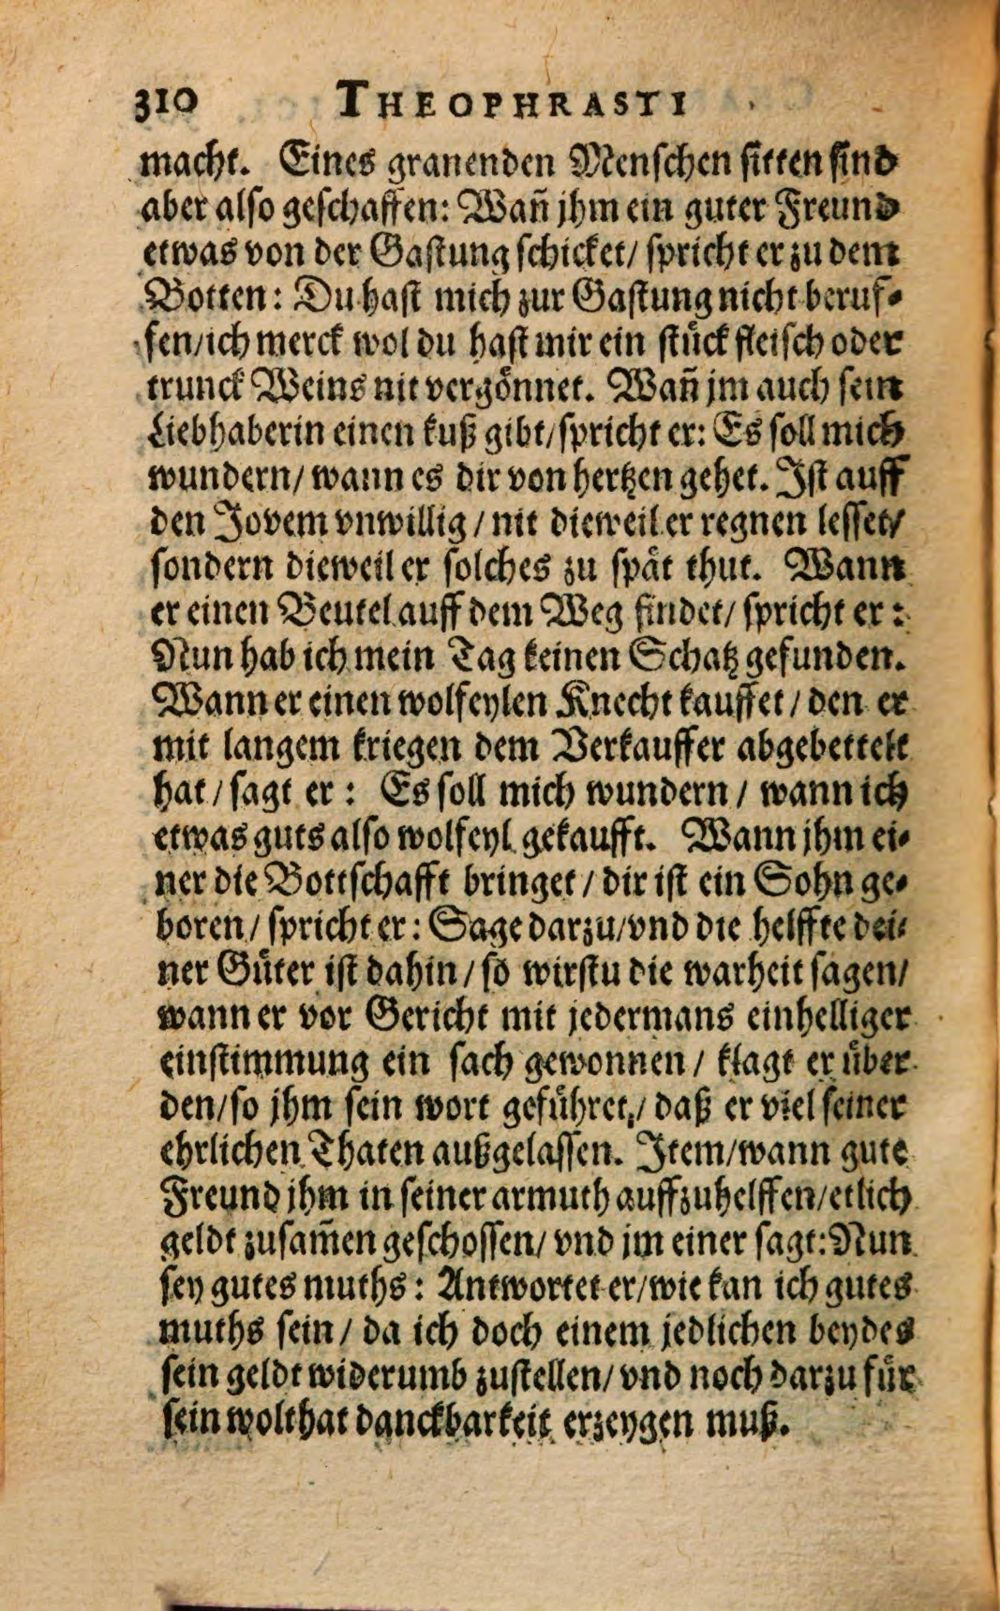 310 THEOPHRASTI
macht. Eines granenden Menschen sitten sind
aber also geschaffen: Wañ jhm ein guter Freund
etwas von der Gastung schicket/ spricht er zu dem
Botten: Du hast mich zur Gastung nicht beruf-
fen/ich merck wol du hast mir ein stuͤck fleisch oder
trunck Weins nit vergoͤnnet. Wañ jm auch sein
Liebhaberin einen kuß gibt/spricht er: Es soll mich
wundern/ wann es dir von hertzen gehet. Ist auff
den Jovem vnwillig / nit dieweil er regnen lesset/
sondern dieweil er solches zu spaͤt thut. Wann
er einen Beutel auff dem Weg findet/ spricht er:
Nun hab ich mein Tag keinen Schatz gefunden.
Wann er einen wolfeylen Knecht kauffet / den er
mit langem kriegen dem Verkauffer abgebettelt
hat / sagt er: Es soll mich wundern / wann ich
etwas guts also wolfeyl gekaufft. Wann jhm ei-
ner die Bottschafft bringet / dir ist ein Sohn ge-
boren / spricht er: Sage darzu/vnd die helffte dei-
ner Guͤter ist dahin / so wirstu die warheit sagen/
wann er vor Gericht mit jedermans einhelliger
einstimmung ein sach gewonnen / klagt er uͤber
den/so jhm sein wort gefuͤhret,/ daß er viel seiner
ehrlichen Thaten außgelassen. Item/wann gute
Freund jhm in seiner armuth auffzuhelffen/etlich
geldt zusam̃en geschossen/ vnd jm einer sagt: Nun
sey gutes muths: Antwortet er/wie kan ich gutes
muths sein / da ich doch einem jedlichen beydes
sein geldt widerumb zustellen/ vnd noch darzu fuͤr
sein wolthat danckbarkeit erzeygen muß.